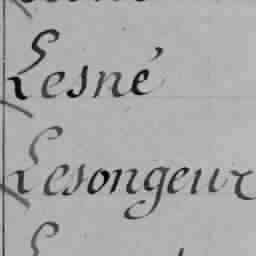 Lesné
Lesongeur